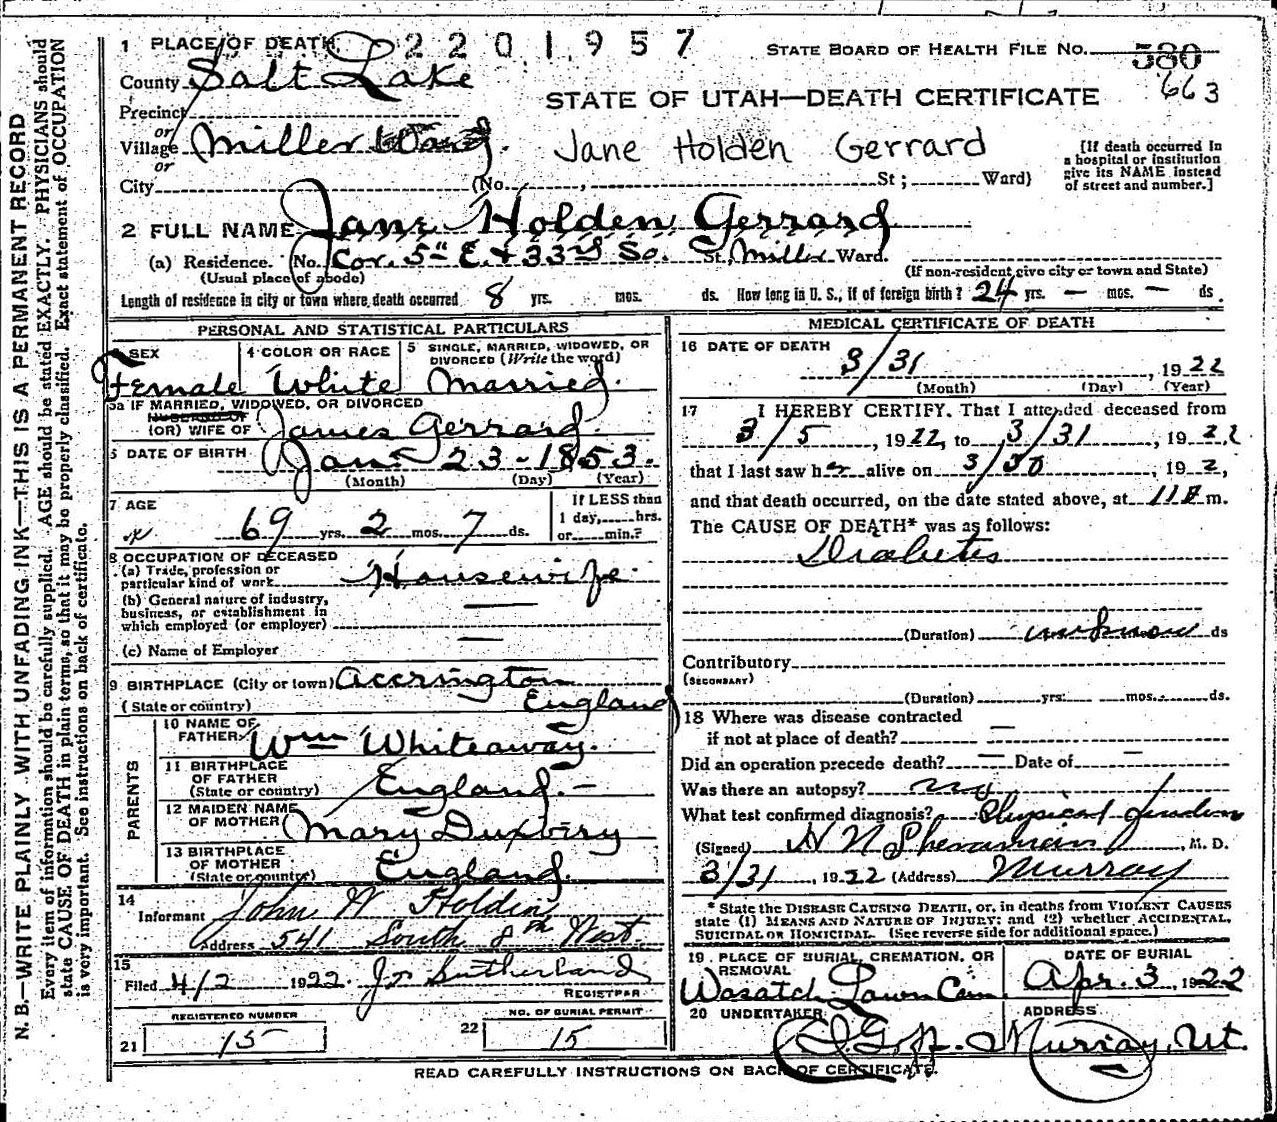 1 PLACE OF DEATH 2201957 STATE BOARD OF HEALTH FILE NO. 580
County Salt Lake 663
STATE OF UTAH—DEATH CERTIFICATE
Precinct
or
Village Miller Ward. Jane Holden Gerrard
or
City (No. , St ; Ward)
[If death occurred in
a hospital or institution
give its NAME instead
of street and number.]
2 FULL NAME Jane Holden Gerrard
(a) Residence. (No. Cor. 5th E. & 33rd So. St, Miller Ward.
(Usual place of abode) (If non-resident give city or town and State)
Length of residence in city or town where death occurred 8 yrs. mos. ds. How long in U. S., if of foreign birth? 24 yrs. — mos. — ds.
PERSONAL AND STATISTICAL PARTICULARS
SEX 4 COLOR OR RACE 5 SINGLE, MARRIED, WIDOWED, OR
DIVORCED (Write the word)
Female White Married.
5a IF MARRIED, WIDOWED, OR DIVORCED
HUSBAND OF
(OR) WIFE OF James Gerrard.
6 DATE OF BIRTH Jan. 23-1853.
(Month) (Day) (Year)
7 AGE If LESS than
69 yrs. 2 mos. 7 ds. 1 day, hrs.
or min.?
8 OCCUPATION OF DECEASED
(a) Trade, profession or
particular kind of work Housewife
(b) General nature of industry,
business, or establishment in
which employed (or employer) —
(c) Name of Employer —
9 BIRTHPLACE (City or town) Accrington
(State or country) England
PARENTS
10 NAME OF
FATHER Wm Whiteaway.
11 BIRTHPLACE
OF FATHER
(State or country) England.-
12 MAIDEN NAME
OF MOTHER Mary Duxbury
13 BIRTHPLACE
OF MOTHER
(State or country) England.
14
Informant John W Holden
Address 541 South 8th West
15
Filed 4/2 1922. Sutherland
REGISTRAR
REGISTERED NUMBER NO. OF BURIAL PERMIT
21 15 22 15
MEDICAL CERTIFICATE OF DEATH
16 DATE OF DEATH
3/31 , 1922
(Month) (Day) (Year)
17 I HEREBY CERTIFY. That I attended deceased from
3/5 , 1922, to 3/31 , 1922
that I last saw her alive on 3/30 , 192,
and that death occurred, on the date stated above, at m.
The CAUSE OF DEATH* was as follows:
Diabetes
(Duration) unknown ds
Contributory
(SECONDARY)
(Duration) yrs. mos. ds.
18 Where was disease contracted
if not at place of death? —
Did an operation precede death? — Date of —
Was there an autopsy? no
What test confirmed diagnosis? Physical
(Signed) , M. D.
3/31 , 1922 (Address) Murray
* State the DISEASE CAUSING DEATH, or, in deaths from VIOLENT CAUSES
state (1) MEANS AND NATURE OF INJURY; and (2) whether ACCIDENTAL,
SUICIDAL OR HOMICIDAL. (See reverse side for additional space.)
19 PLACE OF BURIAL, CREMATION, OR
REMOVAL DATE OF BURIAL
Wasatch Lawn Cem. Apr. 3, 1922
20 UNDERTAKER ADDRESS
Murray, Ut.
READ CAREFULLY INSTRUCTIONS ON BACK OF CERTIFICATE.
N. B.—WRITE PLAINLY WITH UNFADING INK—THIS IS A PERMANENT RECORD
Every item of information should be carefully supplied. AGE should be stated EXACTLY. PHYSICIANS should
state CAUSE OF DEATH in plain terms, so that it may be properly classified. Exact statement of OCCUPATION
is very important. See instructions on back of certificate.